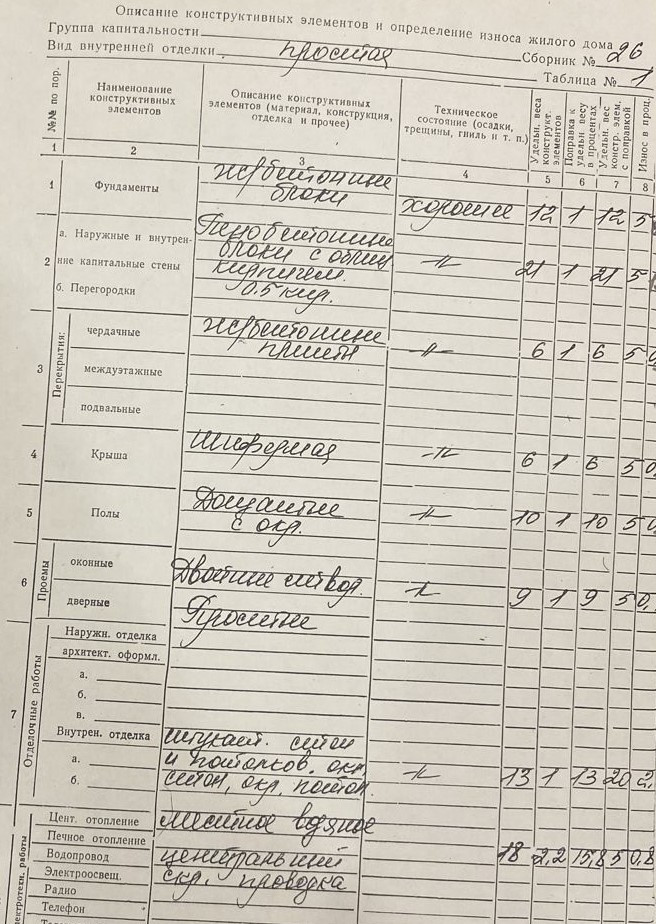 Описание конструктивных элементов и определение износа жилого дома
Группа капитальности
Сборник № 26
Вид внутренней отделки простая
Таблица № 1
№№ по пор.
Наименование конструктивных элементов
Описание конструктивных элементов (материал, конструкция, отделка и прочее)
Техническое состояние (осадки, трещины, гниль и т. п.)
Удельн. веса конструкт. элементов
Поправка к удельн. весу в процентах
Удельн. вес констр. элем. с поправкой
Износ в проц.
1 2 3 4 5 6 7 8
1 Фундаменты
жс/бетонные
блоки
хорошее 12 1 12 5
2
а. Наружные и внутрен-
ние капитальные стены
Пенобетонные
блоки с облиц
кирпичем.
-"- 21 1 21 5
б. Перегородки 0.5 кид.
3 Перекрытия:
чердачные
жс/бетонные
-"- 6 1 6 5 0,
междуэтажные
подвальные
4 Крыша Шиферная -"- 6 1 6 5 0,
5 Полы Дощатые
с окр. -"- 10 1 10 5 0,
6 Проемы
оконные Двойные створ.
дверные Простые -"- 9 1 9 5 0,
7 Отделочные работы
Наружн. отделка
архитект. оформл.
а.
б.
в.
Внутрен. отделка штукат. стен
а. и потолков. окр
б. стен, окр. потол. -"- 13 1 13 20 2,
Цент. отопление местное водяное
Печное отопление
Водопровод центральный 18 2,2 15,8 5 0,8
Электроосвещ. скр. проводка
Радио
Телефон